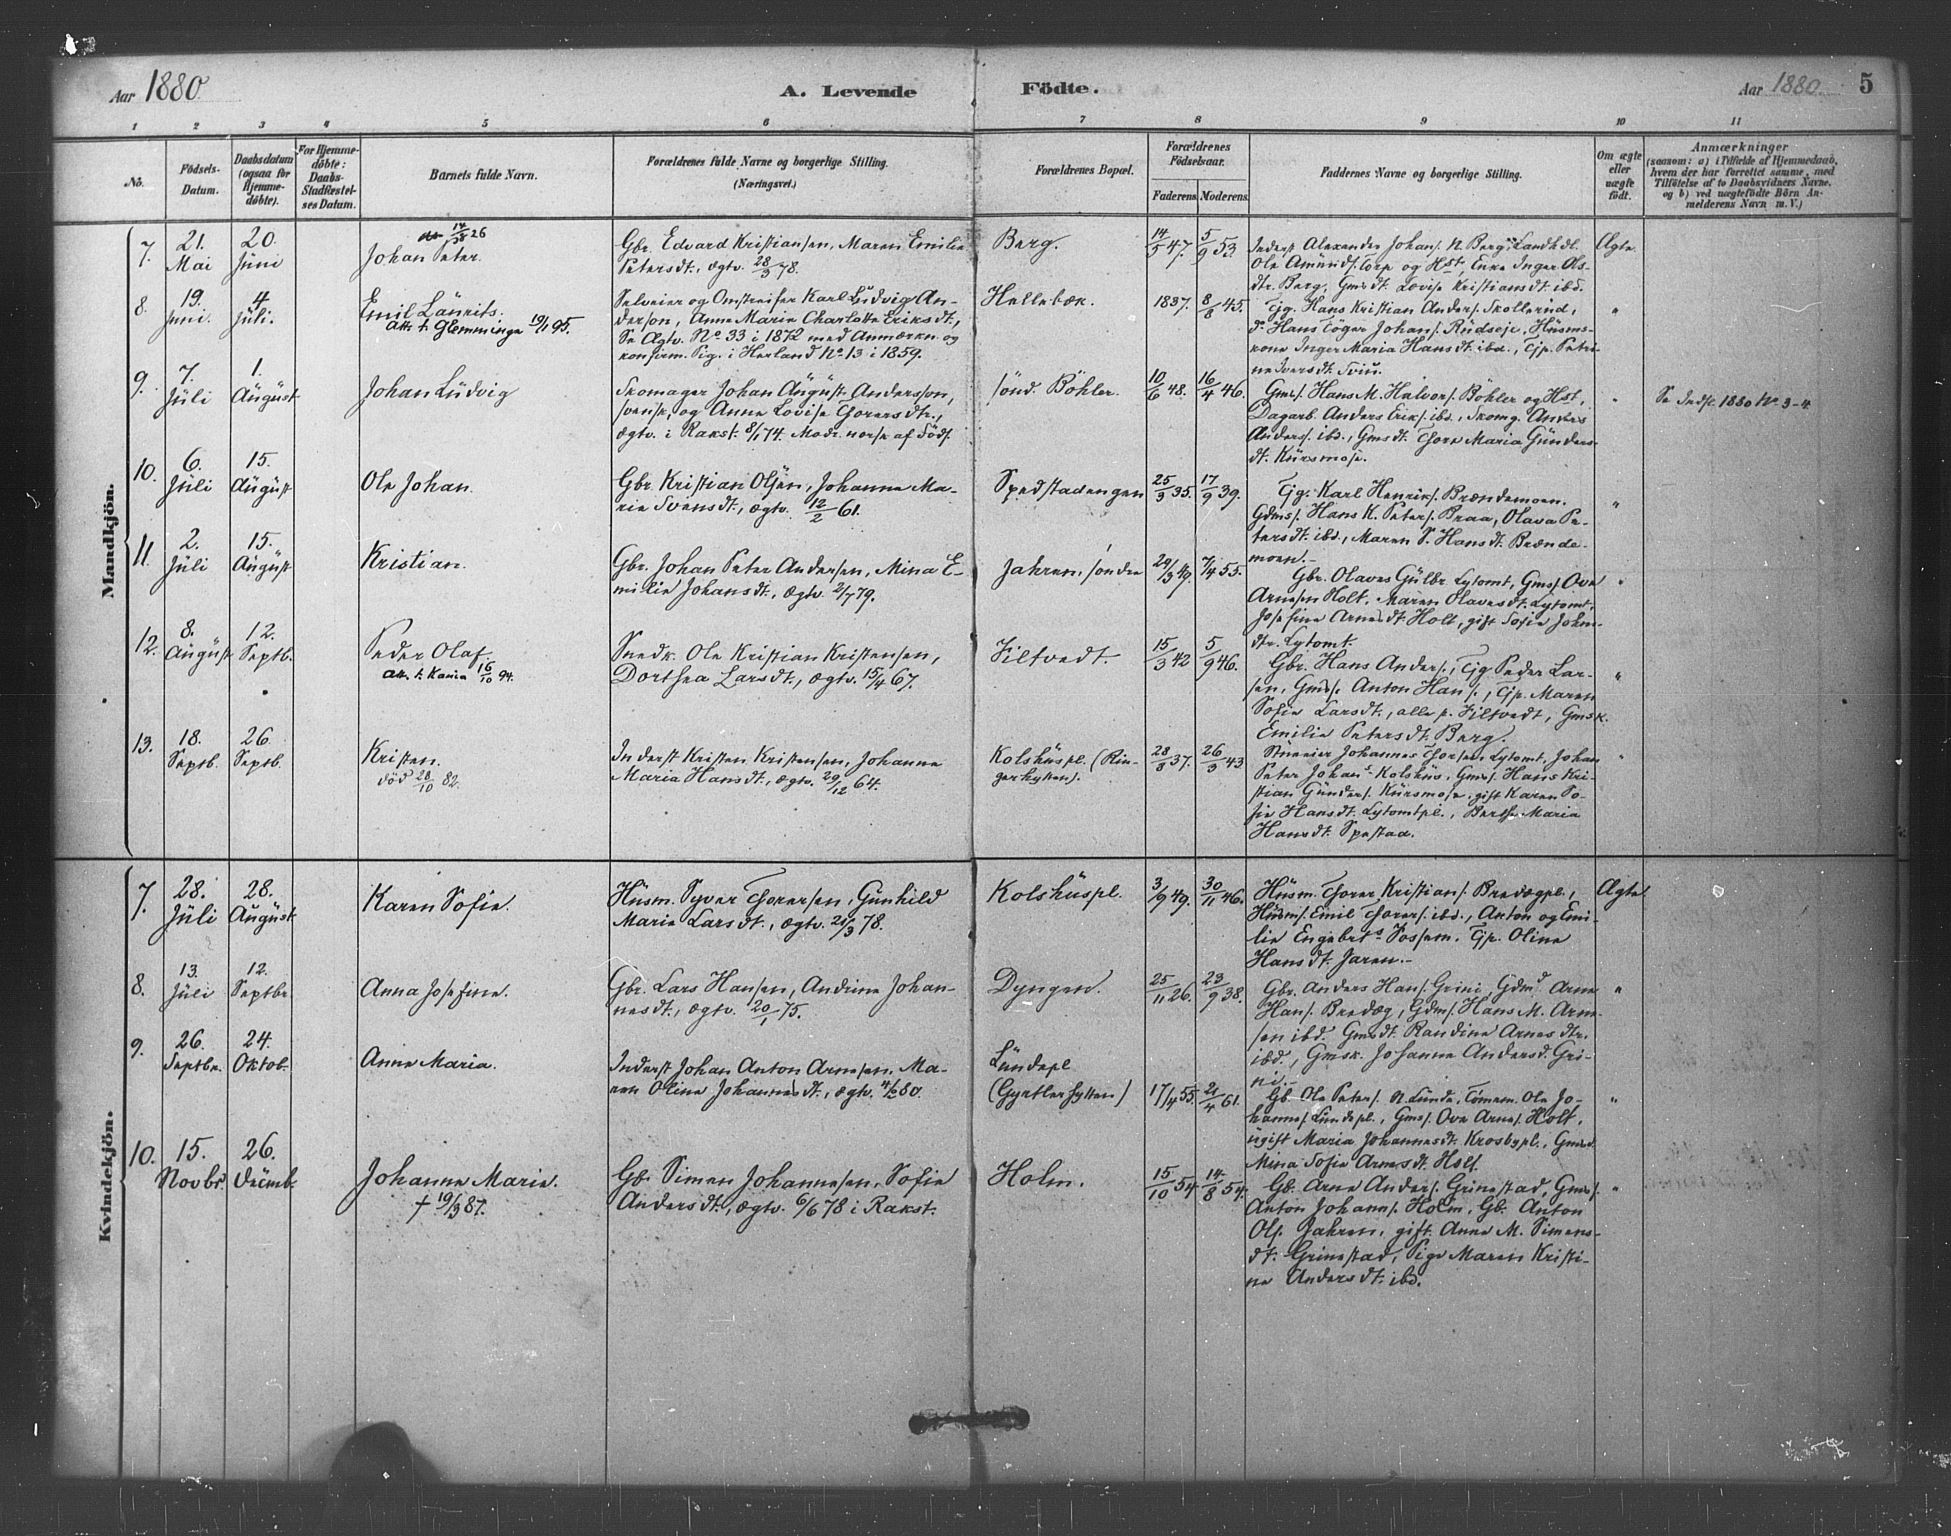 Aar 1880. A. Levende Födte. Aar 1880. 5
1 2 3 4 5 6 7 8 9 10 11
No.
Födsels-Datum.
Daabsdatum (ogsaa for Hjemme-döbte).
For Hjemme-döbte: Daabs-Stadfæstelses Datum.
Barnets fulde Navn.
Forældrenes fulde Navne og borgerlige Stilling.
(Næringsvei.)
Forældrenes Bopæl.
Forældrenes Födselsaar.
Faderens Moderens.
Faddernes Navne og borgerlige Stilling.
Om ægte eller uægte födt.
Anmærkninger
(saasom: a) i Tilfælde af Hjemmedaab,
hvem der har forrettet samme, med
Tilföielse af to Daabsvidners Navne,
og b) ved uægtefödte Börn An-
melderens Navn m. V.)
Mandkjön.
7. 21. Mai 20. Juni
14/38 26
Johan Peter.
Gbr. Edvard Kristiansen, Maren Emilie
Petersdt., ægtv. 28/3 78.
Berg.
14/5 47. 5/9 53.
Inderst Alexander Johans. N. Berg, Landhdl.
Ole Amunds. Torp og Hst, Enke Inger Ols-
dtr. Berg, Gmsdt. Lovise Kristiansdt. ibd.
Ægte.
8. 19. Juni. 4. Juli.
Emil Laurits.
Att. t. Glemminge 19/1 95.
Selveier og Omstreifer Karl Ludvig An-
derson, Anne Marie Charlotte Eriksdt.,
Se Ægtv. No 33 i 1872 med Anmærkn. og
konfirm. Pig. i Herland No 13 i 1859.
Hellebæk.
1837. 8/8 45.
Tjg. Hans Kristian Anders. Skollerud,
do Hans Töger Johans. Rudseie, Husms-
kone Inger Maria Hansdt. ibd., Tjp. Petri-
ne Iversdt. Sviu.
"
9. 7. Juli 1. August
Johan Ludvig
Skomager Johan August Andersson,
svensk, og Anne Lovise Thoresdtr.,
ægtv. i Rakst. 8/1 74. Modr. norsk af Föds.
sönd. Böhler.
10/6 48. 16/4 46.
Gms. Hans M. Halvors. Böhler og Hst,
Dagarb. Anders Eriks. ibd., Skomg. Anders
Anders. ibd., Gmsdt. Thora Maria Gunders-
dt. Kursmose.
"
Se Indf. 1880 No. 3-4
10. 6. Juli 15. August
Ole Johan.
Gbr. Kristian Olsen, Johanne Ma-
rie Svensdt., ægtv. 12/2 61.
Spedstadengen
25/3 35. 17/9 39.
Tjg. Karl Henriks. Brændemoen.
Gdms. Hans K. Peters. Braa, Olava Pe-
tersdt. ibd., Maren S. Hansdt. Brænde-
moen.-
"
11. 2. Juli 15. August
Kristian.
Gbr. Johan Peter Andersen, Mina E-
milie Johansdt., ægtv. 2/7 79.
Jahren, söndre
29/3 49. 7/4 55.
Gbr. Olaves Gulbr. Lytomt, Gms. Ove
Arnesen Holt, Maren Olavesdt. Lytomt,
Josefine Arnesdt. Holt, gift Sofie Johns-
dtr. Lytomt.
"
12. 8. August 12. Septb.
Peder Olaf
Att. t. Kania 16/10 94.
Snedk. Ole Kristian Kristensen,
Dorthea Larsdt., ægtv. 15/4 67.
Filtvedt.
15/3 42 5/9 46.
Gbr. Hans Anders., Tjg Peder Lar-
sen, Gms. Anton Hans., Tjp. Maren
Sofie Larsdt., alle p. Filtvedt, Gmsk.
Emilie Petersdt. Berg.
"
13. 18. Septb. 26. Septb.
Kristen.
död 28/10 82.
Inderst Kristen Kristensen, Johanne
Maria Hansdt., ægtv. 29/12 64.
Kolshuspl. (Rin-
gerhytten).
28/8 37. 26/3 43
Johannes Thorsen Lytomt, Johan
Peter Johans Kolshus, Gms. Hans Kri-
stian Gunders. Kursmose, gift Karen So-
fie Hansdt. Lytomtpl., Berthe Maria
Hansdt. Spestad.
"
Kvindekjön.
7. 28. Juli 28. August
Karen Sofie.
Husm. Syver Thoresen, Gunhild
Marie Larsdt., ægtv. 29/3 78.
Kolshuspl.
3/9 49. 30/11 46.
Husm. Thorer Kristians. Bredægpl.,
Husms. Emil Thores. ibd., Anton og Emi-
lie Engebrts Fossem. Tjp. Oline
Hansdt. Jaren.-
Ægte
8. 13. Juli 12. Septbr.
Anna Josefine.
Gbr. Lars Hansen, Andrine Johan-
nesdt., ægtv. 20/1 75.
Dyngen.
25/11 26. 23/9 38.
Gbr. Anders Hans. Grini, Gdmd Arne
Hans. Bredæg, Gdms. Hans M. Arne-
sen ibd. Gmsdt. Randine Arnesdtr.
ibd., Gmsk. Johanne Andersd. Gri-
ni.-
"
9. 26. Septbr. 24. Oktob.
Anne Maria.
Inderst Johan Anton Arnesen, Ma-
ren Oline Johannesdt., ægtv. 4/6 80.
Lundepl
(Gyrtlerhytten)
17/4 55. 21/4 61.
Gb. Ole Peters. N. Lunde, Tömem. Ole Jo-
hannes. Lundepl., Gms. Ove Arnes. Holt,
ugift Maria Johannesdt. Krosbypl., Gmsd.
Mina Sofie Arnesdt. Holt.
"
10. 15. Novbr. 26. Decmb.
Johanne Marie.
† 19/3 87.
Gb. Simen Johannesen, Sofie
Andersdt., ægtv. 6/6 78 i Rakst.
Holm.
15/10 54 14/8 54.
Gb. Arne Anders. Grinestad, Gms.
Anton Johanns. Holm, Gb. Anton
Ols. Jahren, gift Anne M. Simens-
dt. Grinestad, Pige Maren Kristi-
ne Andersdt. ibd.
"